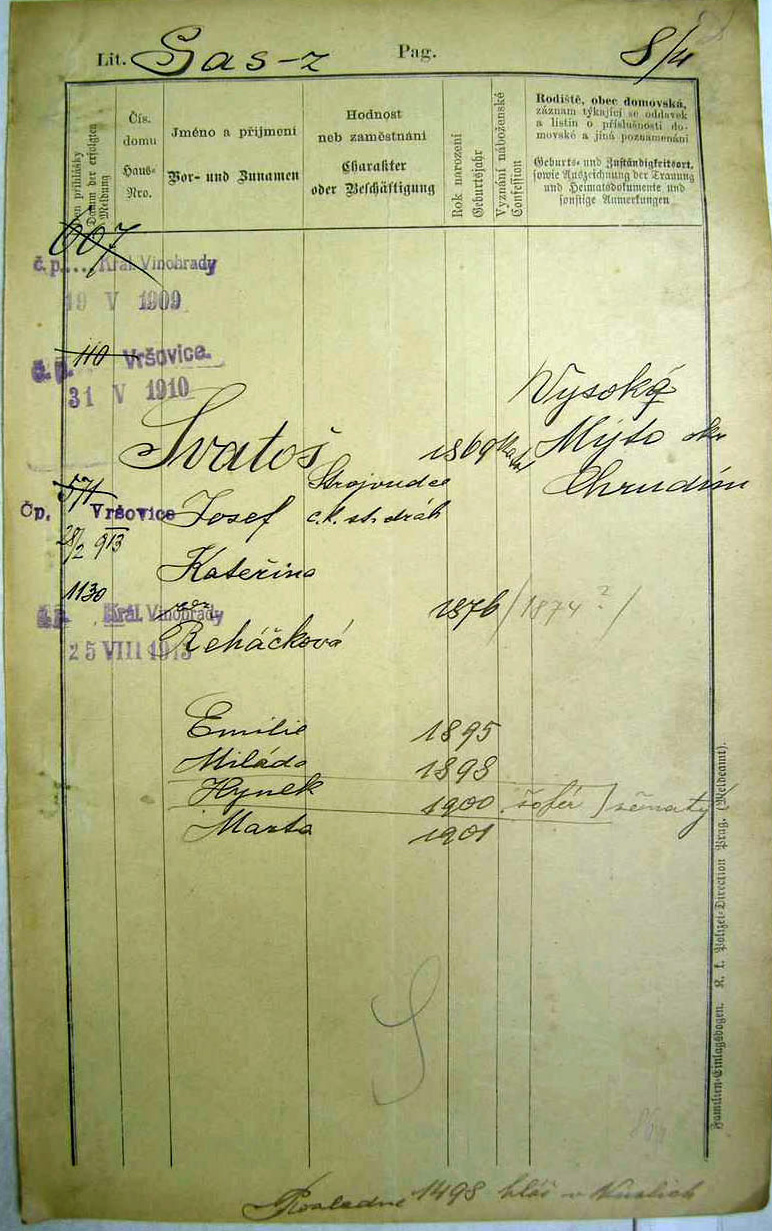 Lit. Pag. 8/11
Datum der erfolgten Meldung
Čís. domu
Haus-Nro.
Jméno a příjmení
Vor- und Zunamen
Hodnost
neb zaměstnání
Charakter
oder Beschäftigung
Rok narození
Geburtsjahr
Vyznání náboženské
Confession
Rodiště, obec domovská,
záznam týkající se oddavek
a listin o příslušnosti do-
movské a jiná poznamenání
Geburts- und Zuständigkeitsort,
sowie Auszeichnung der Trauung
und Heimatsdokumente und
sonstige Anmerkungen
607
č. p.... Král. Vinohrady
19 V 1909
110
č. p. Vršovice.
31 V 1910
Vysoké
Svatoš 1869 Mýto okr
Strojvudce Chrudim
571
Čp. Vršovice Josef c.k. st. drah
28/2 913
Kateřina
1130
roz.
č. p. Král. Vinohrady 1876 /1874?/
Řeháčková
25 VIII 1913
Emilie 1895
Milada 1898
Hynek 1900 šofér) ženatý
Marta 1901
S
Posledně 1498 hláš v Nuslích
Familien-Einlagsbogen. K. k. Polizei-Direction Prag. (Meldeamt).